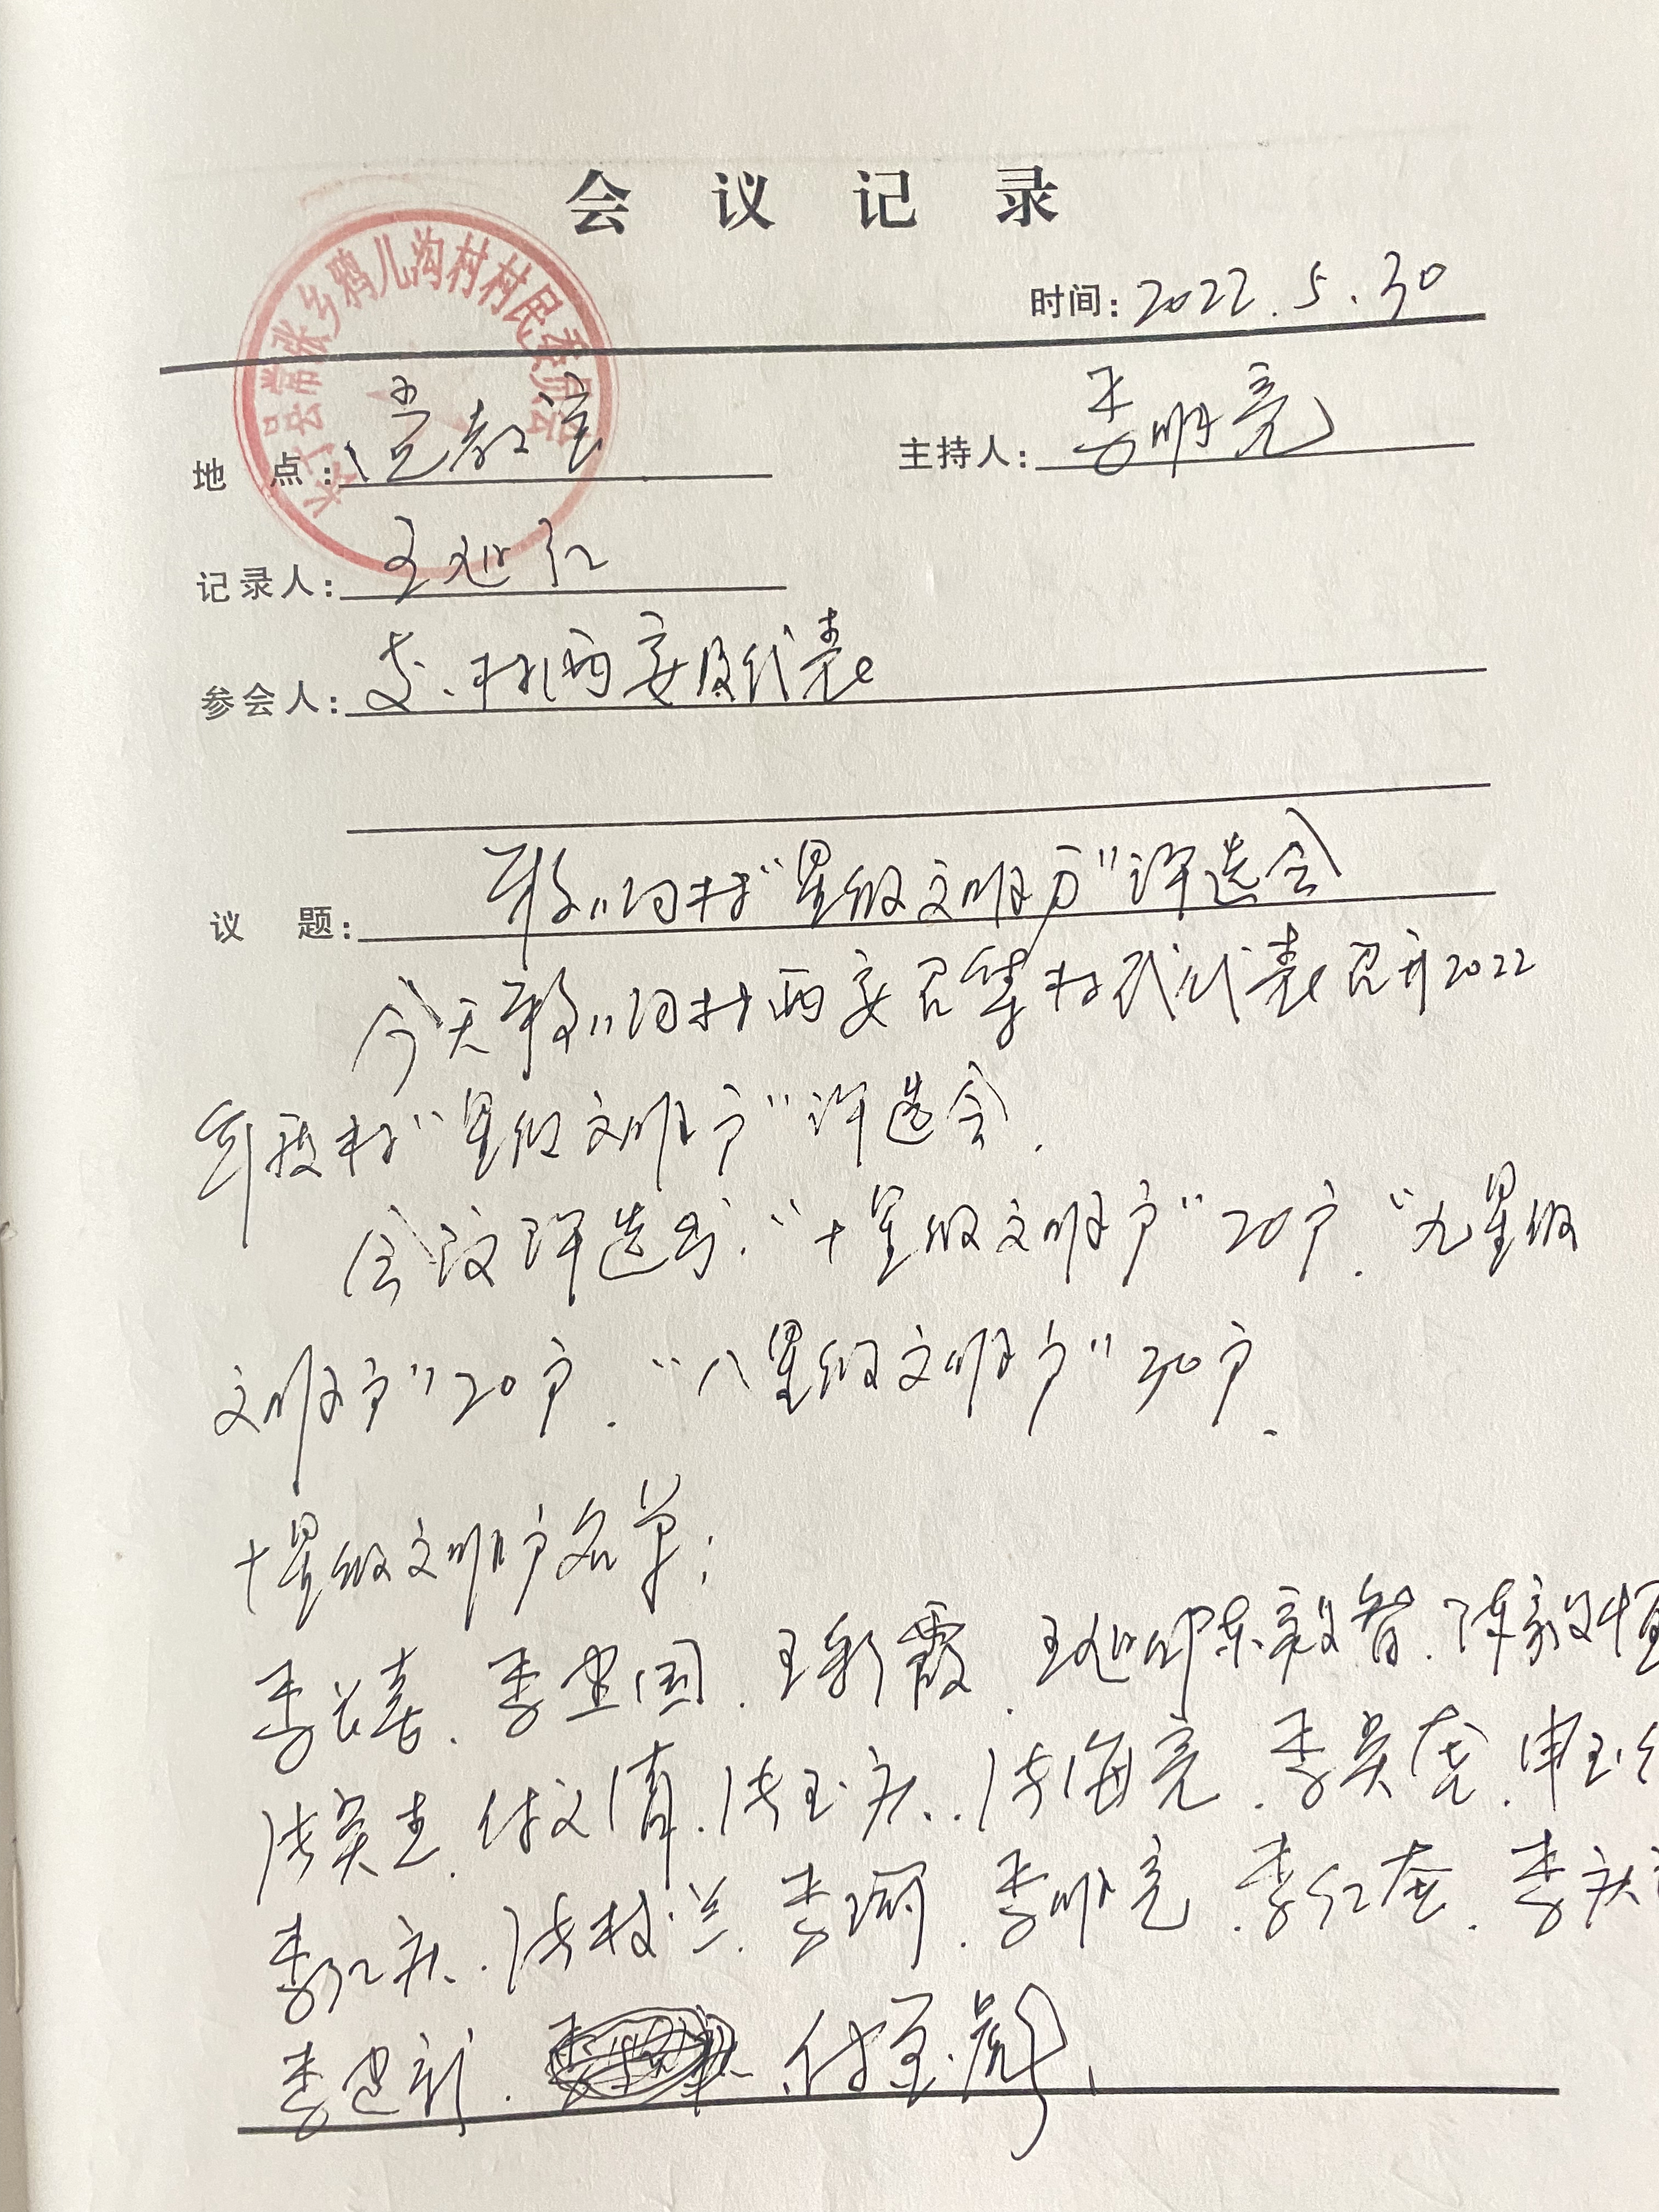 会议记录
时间：2022.5.30
长子县常张乡鸦儿沟村村民委员会
地 点：党教室
主持人：李明亮
记录人：王延红
参会人：支、村两委及代表
议 题：鸦儿沟村“星级文明户”评选会
今天鸦儿沟村两委召集村民代表召开2022
年度村“星级文明户”评选会.
会议评选出.“十星级文明户”20户.“九星级
文明户”20户.“八星级文明户”30户.
十星级文明户名单：
李长喜.李忠国.王彩霞.王延 陈毅智.陈毅恒
张英 .付文清.张玉庆.张海亮.李英虎.申玉
李红庆.张枝兰.李 .李明亮.李红 .李庆
李忠新. 付玉彪、